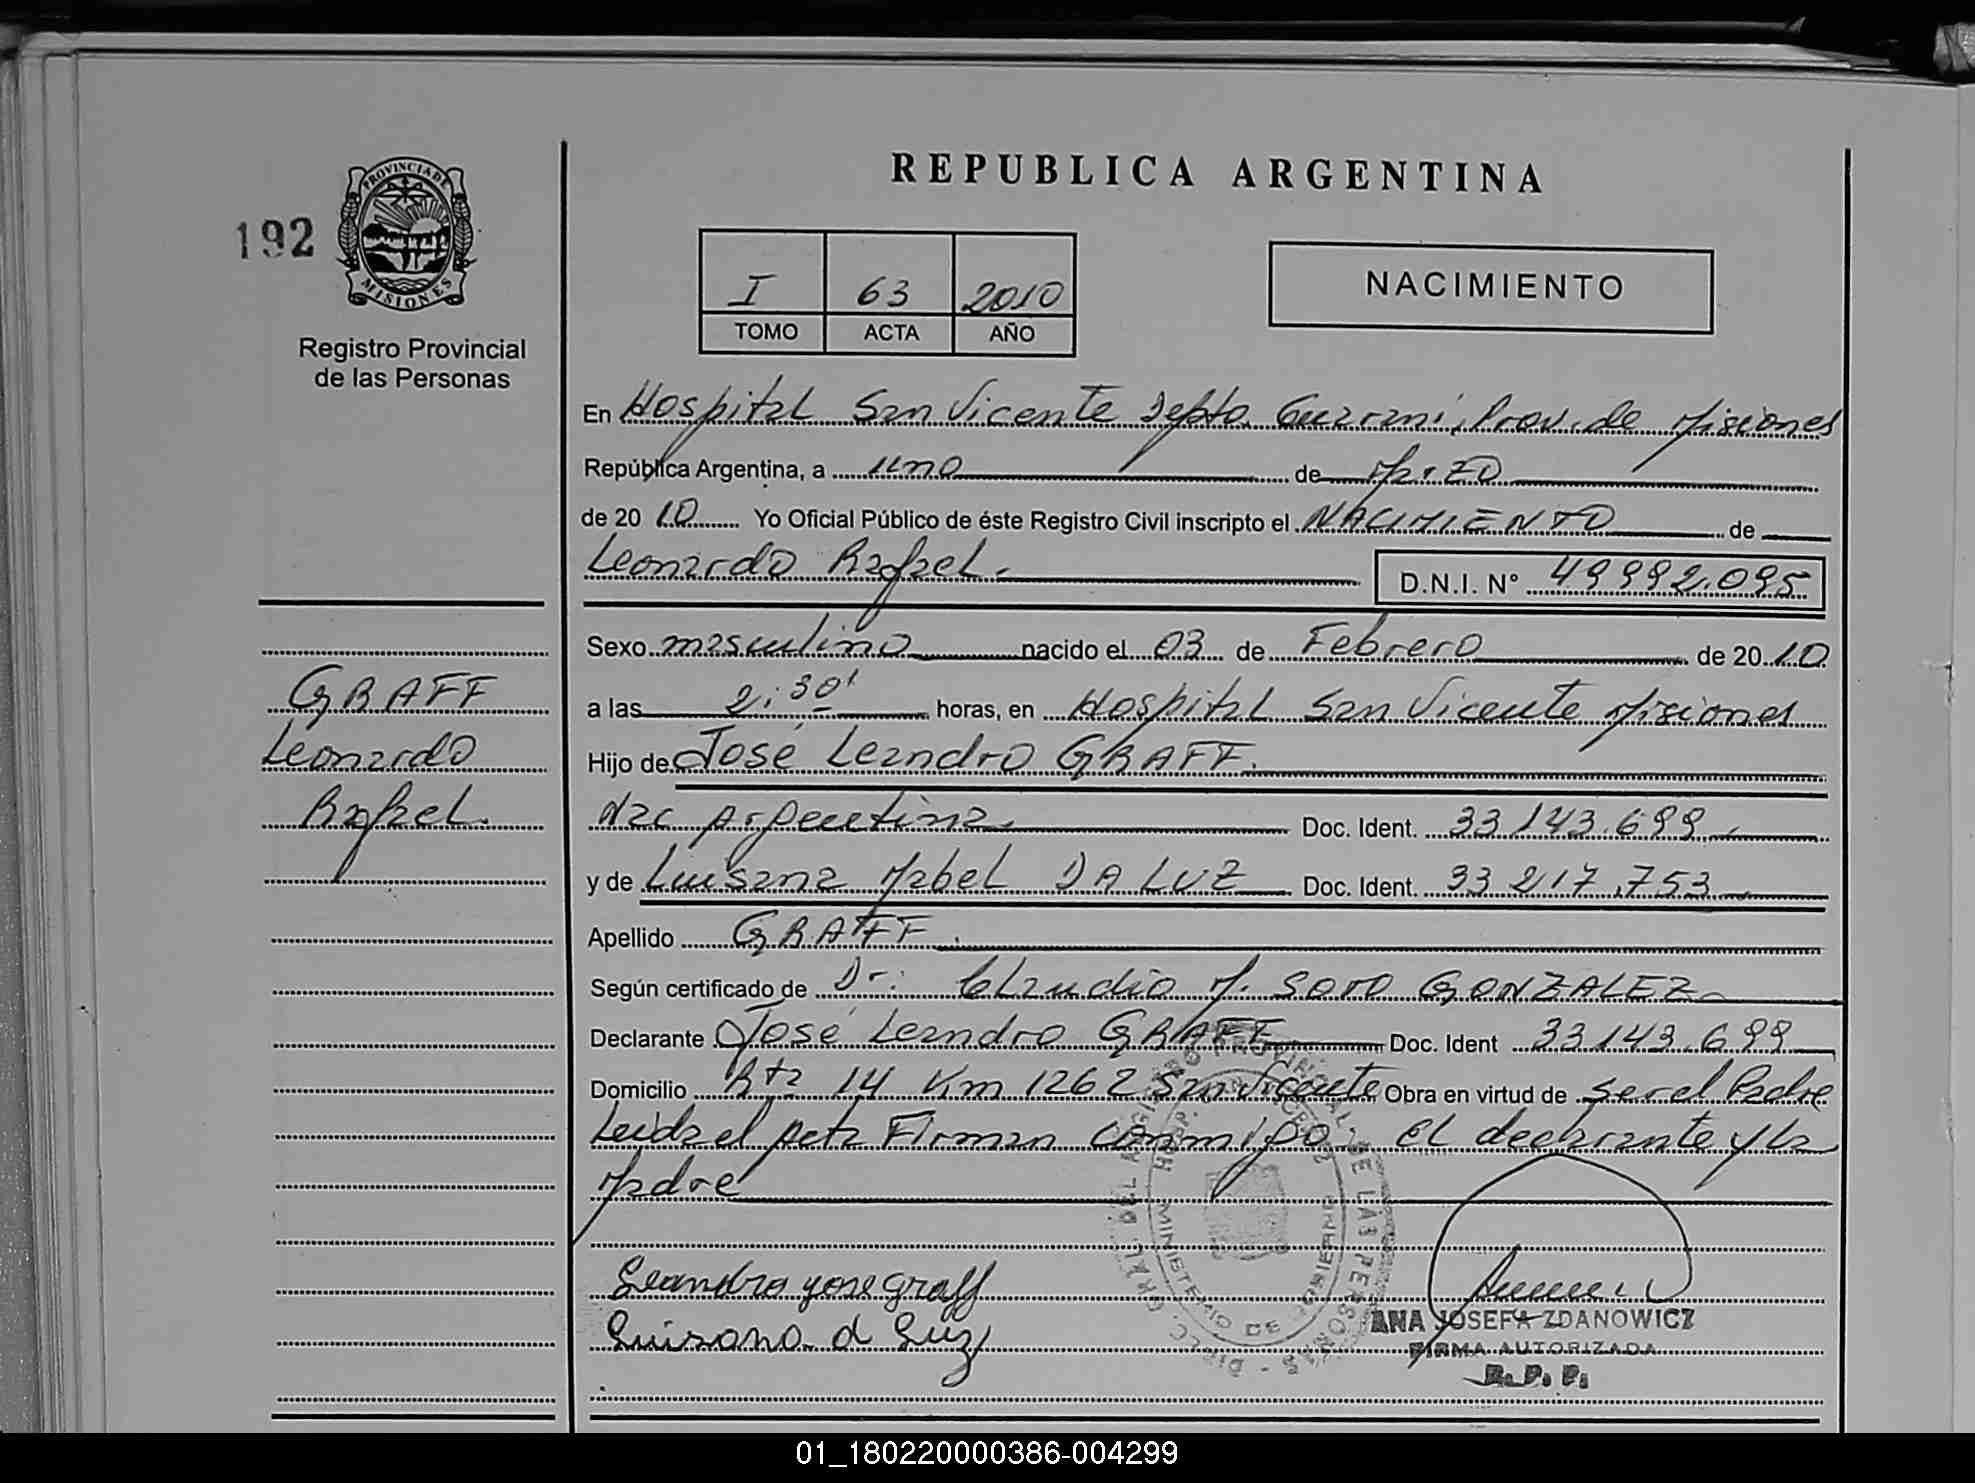 REPUBLICA ARGENTINA
192
PROVINCIA DE
MISIONES
Registro Provincial
de las Personas
I 63 2010
TOMO ACTA AÑO
NACIMIENTO
En Hospital San Vicente Depto. Guarani, Prov. de Misiones
República Argentina, a uno de Marzo
de 20 10 Yo Oficial Público de éste Registro Civil inscripto el NACIMIENTO de
Leonardo Rafael. D.N.I. N° 49992.095
Sexo masculino nacido el 03 de Febrero de 20 10
a las 2:30' horas, en Hospital San Vicente Misiones
Hijo de José Leandro GRAFF.
Nac Argentina. Doc. Ident. 33.143.699
y de Luisana Mabel DA LUZ Doc. Ident. 33 217.753
Apellido GRAFF.
Según certificado de Dr: Claudio M. SOTO GONZALEZ
Declarante José Leandro GRAFF Doc. Ident 33.143.699
Domicilio Rta 14 Km 1262 San Vicente Obra en virtud de ser el Padre
Leida el acta Firman conmigo: el declarante y la
Madre
GRAFF
Leonardo
Rafael.
Leandro Jose graff
Luisana d Luz
DIREC. GRAL. DEL REGISTRO PROVINCIAL DE LAS PERSONAS
MINISTERIO DE GOBIERNO
ANA JOSEFA ZDANOWICZ
FIRMA AUTORIZADA
R.P.P.
01_180220000386-004299